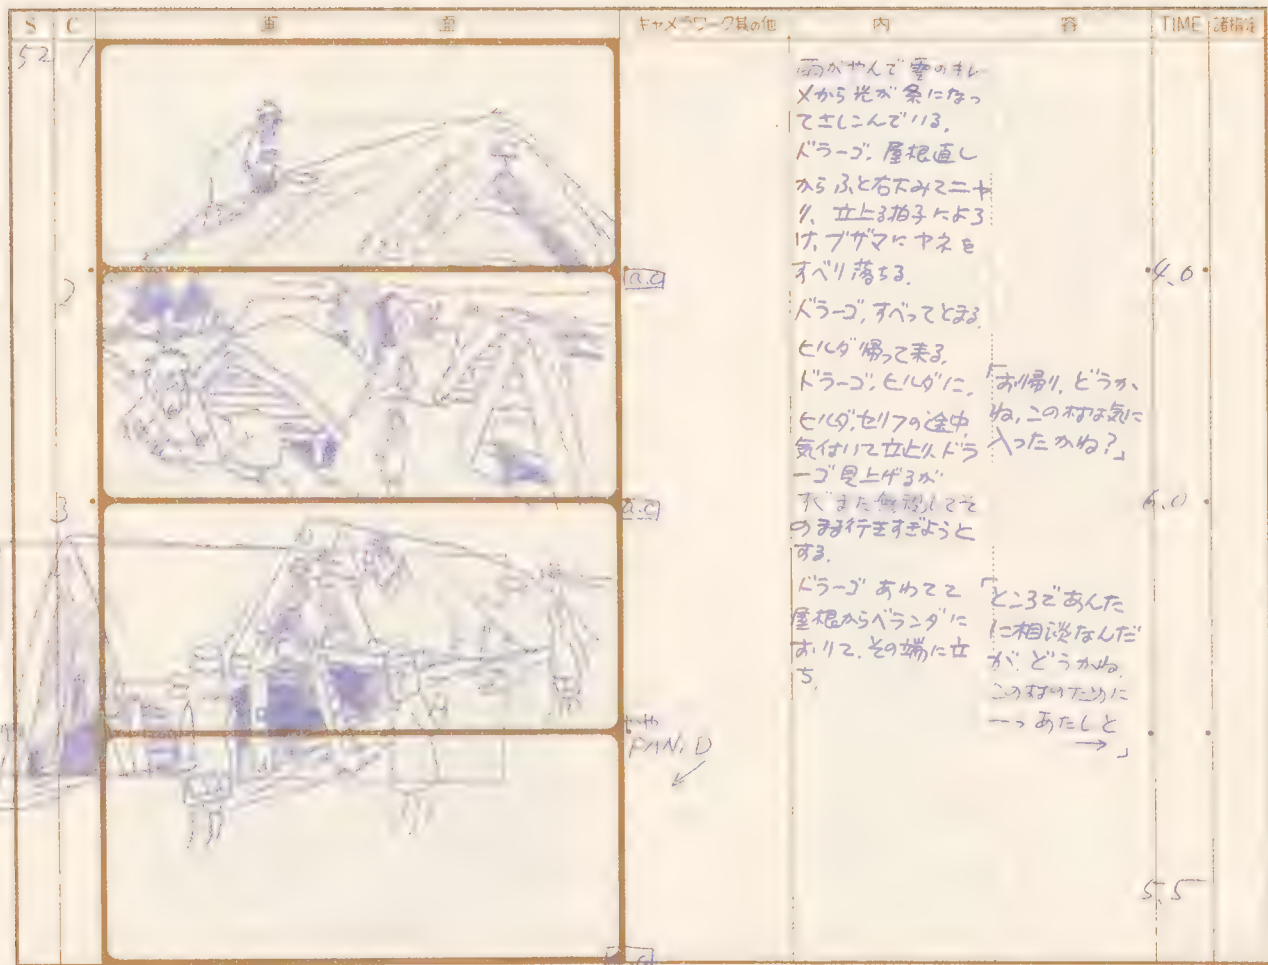 S C 画 面 キャメラワーク其の他 内 容 TIME 諸指定
52 1
雨がやんで雲のキレ
メから光が条になっ
てさしこんでいる。
ドラーゴ、屋根直し
からふと右下みてニヤ
リ、立上る拍子によろ
け、ブザマにヤネを
すべり落ちる。
a.c
4.0
2
ドラーゴ、すべってとまる。
ヒルダ帰って来る。
ドラーゴ、ヒルダに、
「お帰り、どうか
ね、この村は気に
入ったかね?」
ヒルダ、セリフの途中
気付いて立止り、ドラ
ーゴ見上げるが
すぐまた無視してそ
のまま行きすぎようと
する。
a.c
6.0
3
ドラーゴ あわてて
屋根からベランダに
おりて、その端に立
ち、
「ところであんた
に相談なんだ
が、どうかね、
この村のために
一つあたしと
→」
やや
PAN.D
5.5